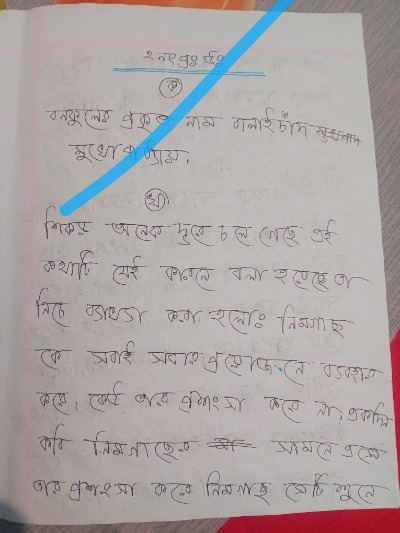 ২নং প্রঃ উঃ
ক
বনফুলের প্রকৃত নাম বালাইচাঁদ
মুখোপাধ্যায়.
খ
শিকড় অনেক দুরে চলে গেছে এই
কথাটি যেই কারনে বলা হয়েছে তা
নিচে ব্যাখ্যা করা হলোঃ নিমগাছ
কে সবাই সবার প্রয়োজনে ব্যবহার
করে, কেউ তার প্রশংসা করে না, একদিন
কবি নিমগাছের সামনে এসে
তার প্রশংসা করে নিমগাছ সেটি শুনে